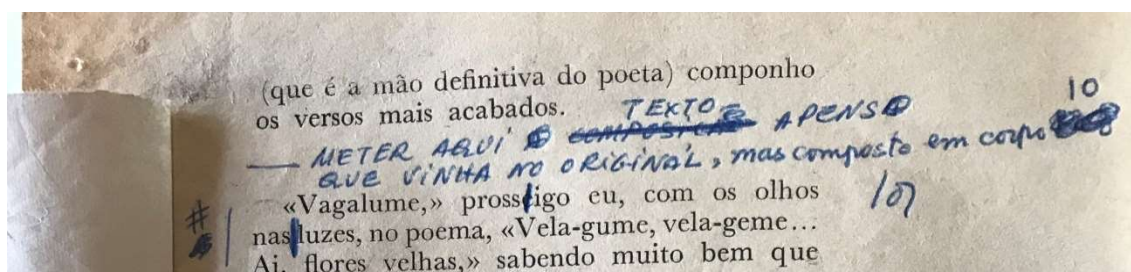 (que é a mão definitiva do poeta) componho
os versos mais acabados.
TEXTO
10
— METER AQUI O APENSO
QUE VINHA NO ORIGINAL, mas composto em corpo
«Vagalume,» prossigo eu, com os olhos
nas luzes, no poema, «Vela-gume, vela-geme...
Ai, flores velhas,» sabendo muito bem que
#